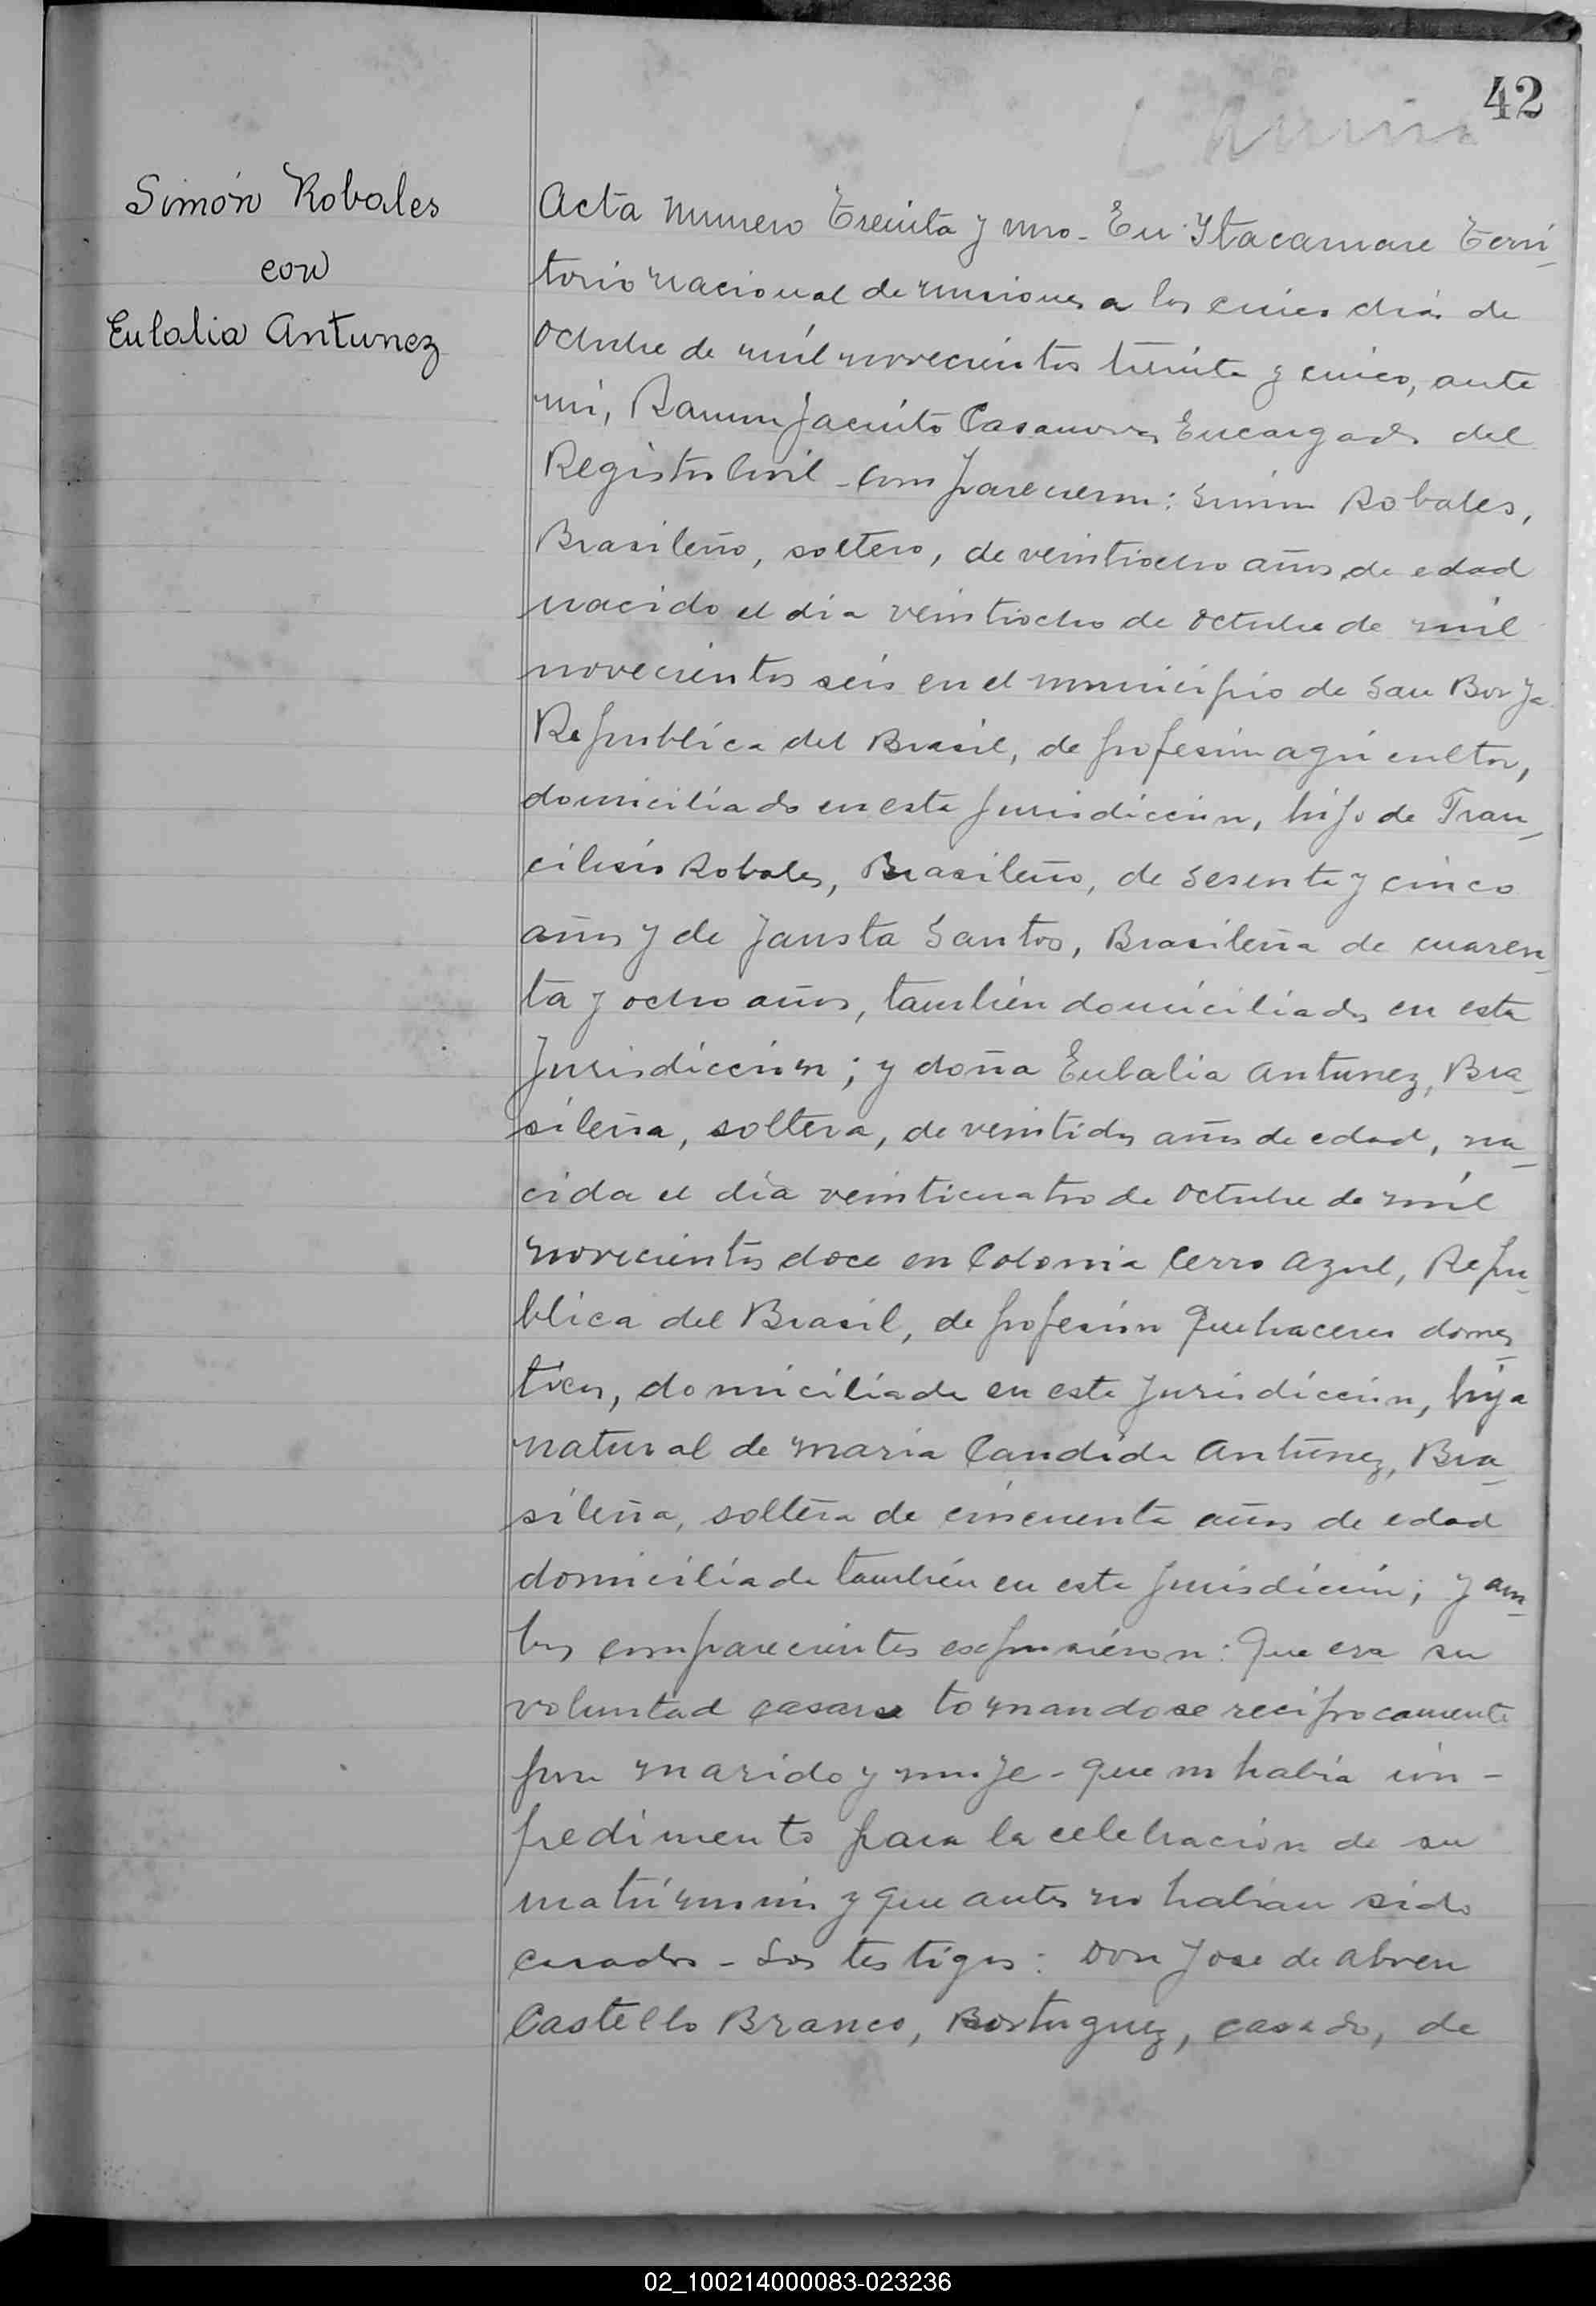 42
Simón Robales
con
Eulalia Antunez
Acta Numero Treinta y uno - En Itacamare Terri
torio nacional de misiones a los cinco dias de
Octubre de mil novecientos treinta y cinco, ante
mi, Ramon Jacinto Casanova, Encargado del
Registro Civil - comparecieron: Simon Robales,
Brasileño, soltero, de veintiocho años de edad
nacido el dia veintiocho de Octubre de mil
novecientos seis en el municipio de San Borja
Republica del Brasil, de profesion agricultor,
domiciliado en esta Jurisdiccion, hijo de Fran
cilisio Robales, Brasileño, de sesenta y cinco
años y de Fausta Santos, Brasileña de cuaren
ta y ocho años, tambien domiciliados en esta
Jurisdiccion; y doña Eulalia Antunez, Bra
sileña, soltera, de veintidos años de edad, na
cida el día veinticuatro de Octubre de mil
novecientos doce en Colonia Cerro Azul, Repu
blica del Brasil, de profesión Quehaceres domes
ticos, domiciliada en esta Jurisdiccion, hija
natural de Maria Candida Antunez, Bra
sileña, soltera de cincuenta años de edad
domiciliada también en esta Jurisdiccion; y am
bos comparecientes expusieron: Que era su
voluntad casarse tomandose reciprocamente
por marido y muje - que no habia im-
pedimento para la celebración de su
matrimonio y que antes no habian sido
casados - Los testigos: Don Jose de Abreu
Castello Branco, Portuguez, casado, de
02_100214000083-023236